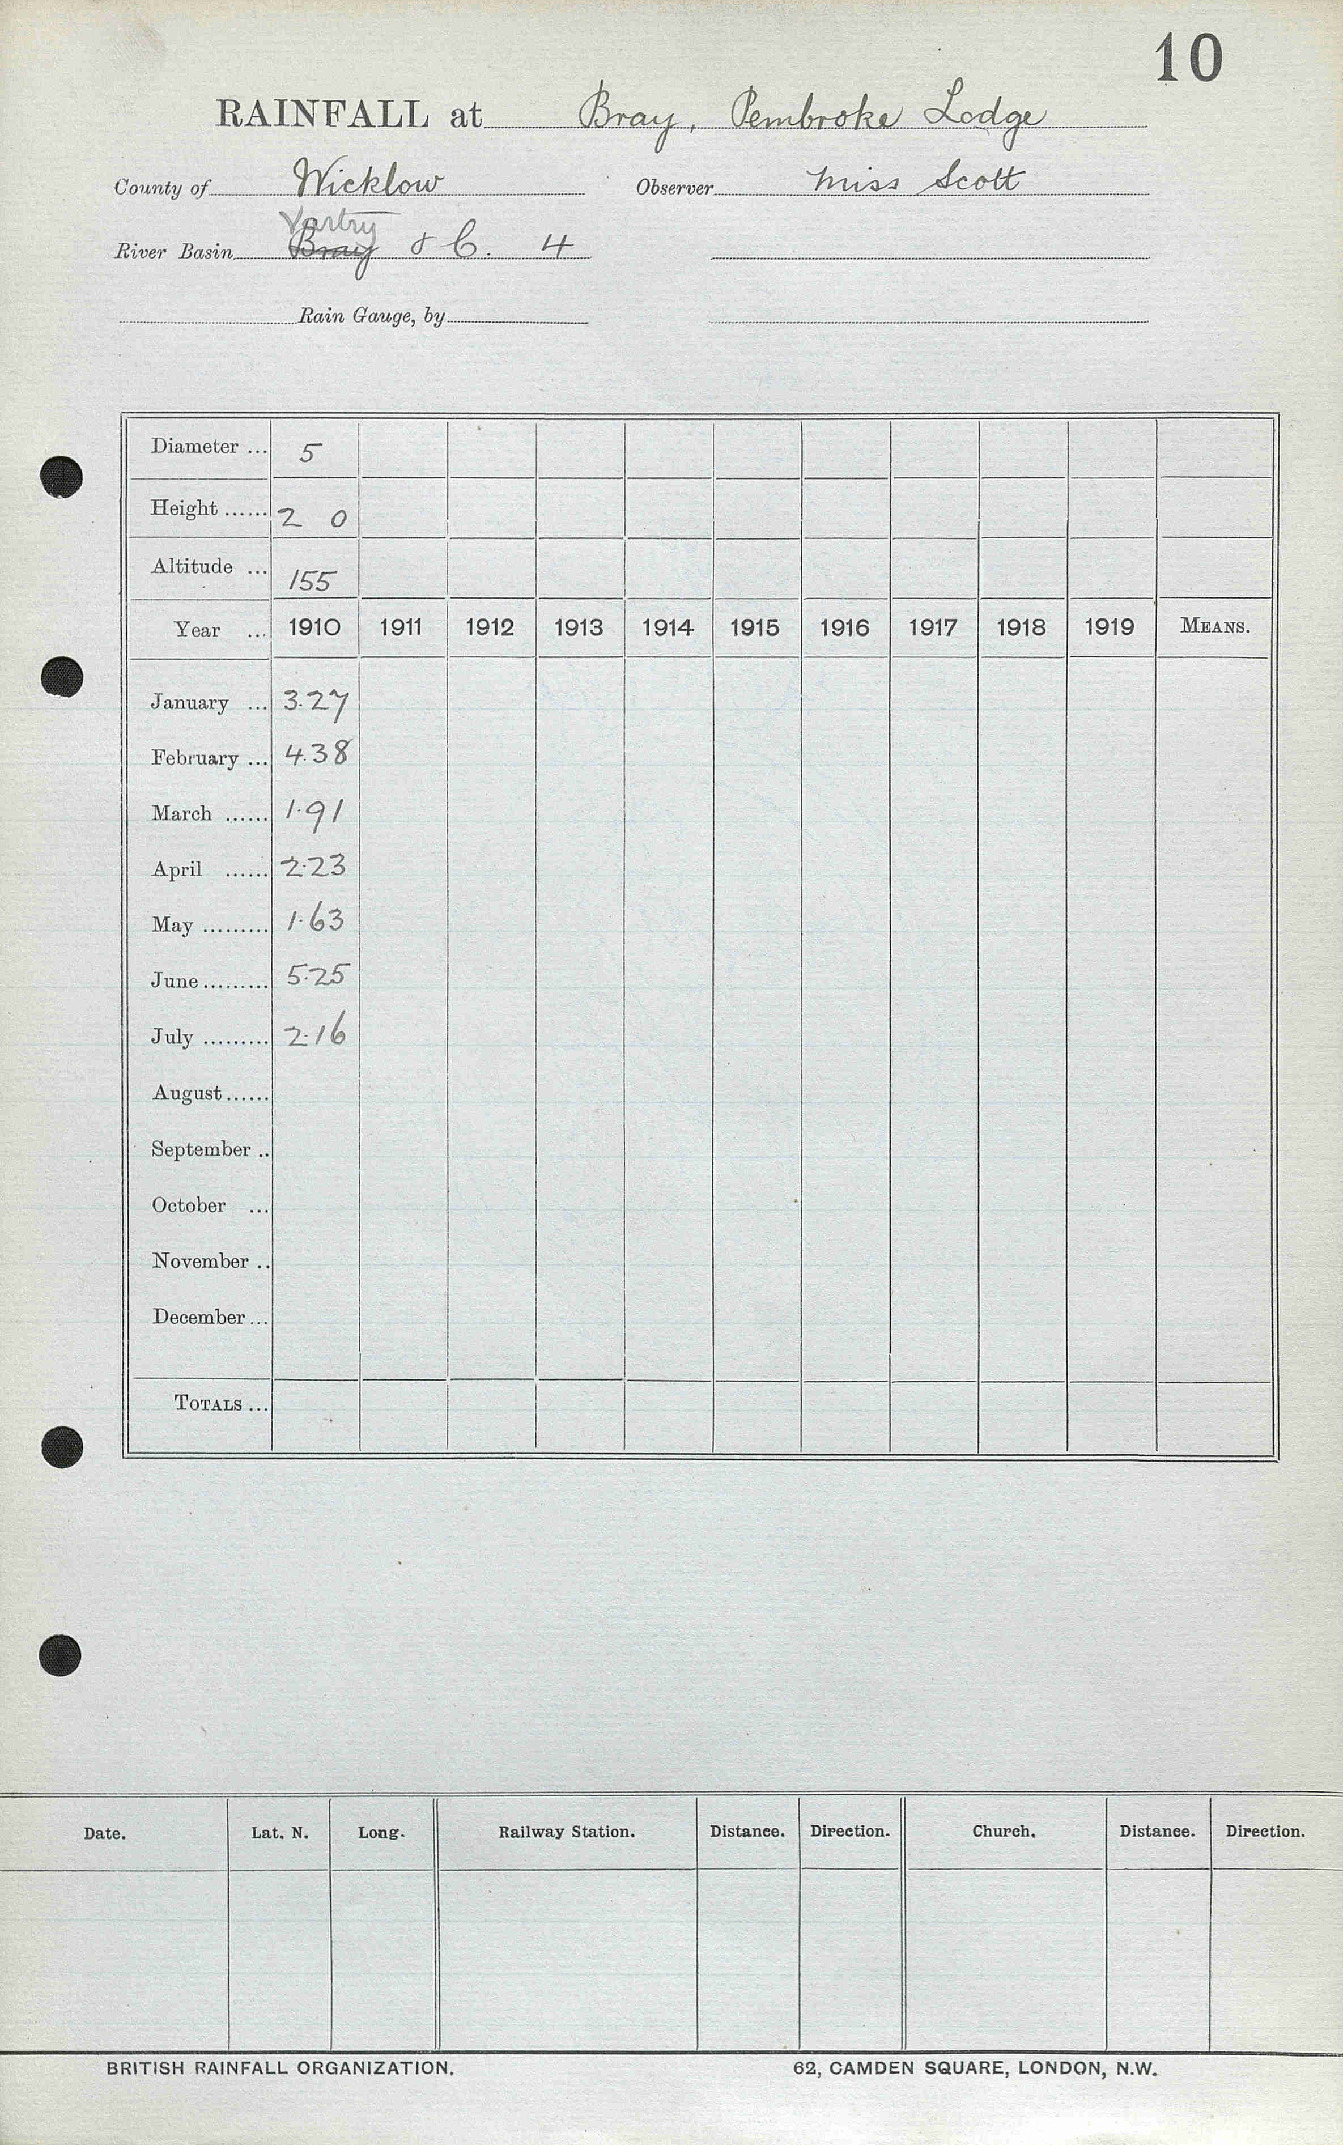 10
RAINFALL at Bray, Pembroke Lodge
County of Wicklow Observer Miss Scott
Vartry
River Basin Bray & C. 4
Rain Gauge, by
Diameter ... 5
Height ...... 2 0
Altitude ... 155
Year ... 1910 1911 1912 1913 1914 1915 1916 1917 1918 1919 MEANS.
January ... 3.27
February ... 4.38
March ...... 1.91
April ...... 2.23
May ......... 1.63
June ......... 5.25
July ......... 2.16
August ......
September ..
October ...
November ..
December ...
TOTALS ...
Date. Lat. N. Long. Railway Station. Distance. Direction. Church. Distance. Direction.
BRITISH RAINFALL ORGANIZATION. 62, CAMDEN SQUARE, LONDON, N.W.